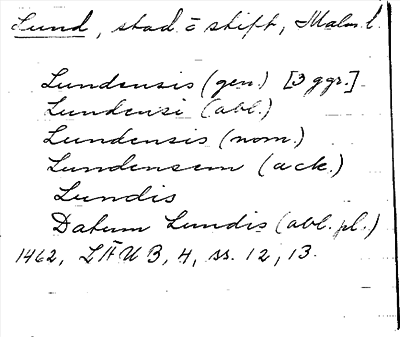 Lund, stad o stift, Malm. l.
Lundensis (gen.) [3 ggr.]
Lundensi (abl.)
Lundensis (nom.)
Lundensem (ack.)
Lundis
Datum Lundis (abl. pl.)
1462, LÄUB, 4, ss. 12, 13.